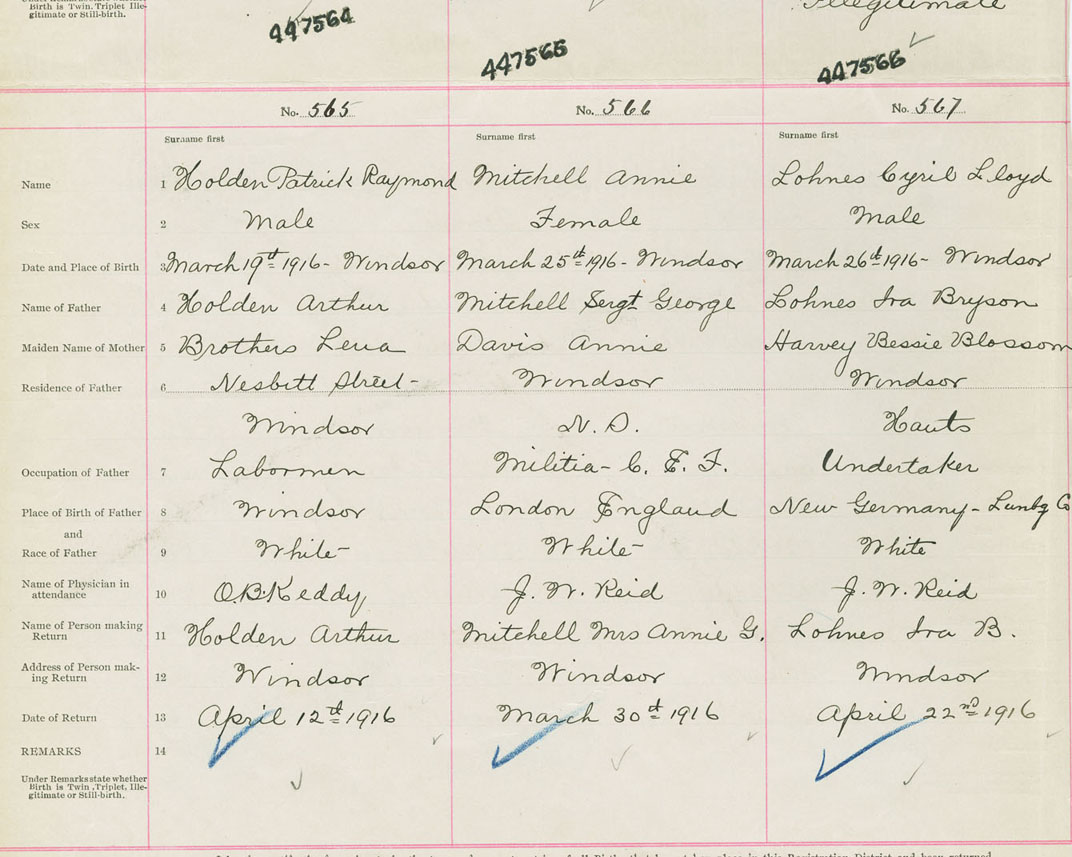 Birth is Twin, Triplet, Ille-
gitimate or Still-birth.
Illegitimate
447564
447565
447566
No. 565 No. 566 No. 567
Surname first Surname first Surname first
Name 1 Holden Patrick Raymond Mitchell Annie Lohnes Cyril Lloyd
Sex 2 Male Female Male
Date and Place of Birth 3 March 19th 1916 - Windsor March 25th 1916 - Windsor March 26th 1916 - Windsor
Name of Father 4 Holden Arthur Mitchell Sergt George Lohnes Ira Bryson
Maiden Name of Mother 5 Brothers Lena Davis Annie Harvey Bessie Blossom
Residence of Father 6 Nesbitt Street - Windsor Windsor
Windsor N. S. Hants
Occupation of Father 7 Labormen Militia - C. E. F. Undertaker
Place of Birth of Father 8 Windsor London England New Germany - Lunbg Co
and
Race of Father 9 White White White
Name of Physician in
attendance 10 O.B. Keddy J. W. Reid J. W. Reid
Name of Person making
Return 11 Holden Arthur Mitchell Mrs Annie G. Lohnes Ira B.
Address of Person mak-
ing Return 12 Windsor Windsor Windsor
Date of Return 13 April 12th 1916 March 30th 1916 April 22nd 1916
REMARKS 14
Under Remarks state whether
Birth is Twin, Triplet, Ille-
gitimate or Still-birth.